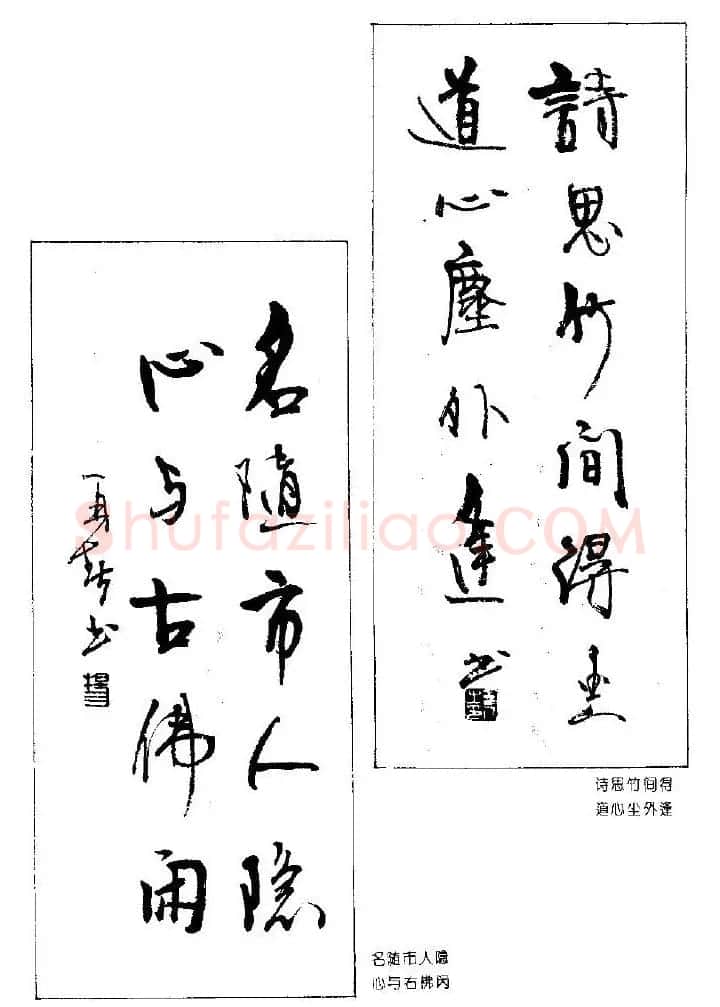 詩思竹间得
道心塵外逢
书
名随市人隐
心与古佛闲
书
诗思竹间得
道心尘外逢
名随市人隐
心与古佛闲
Shufaziliao.COM